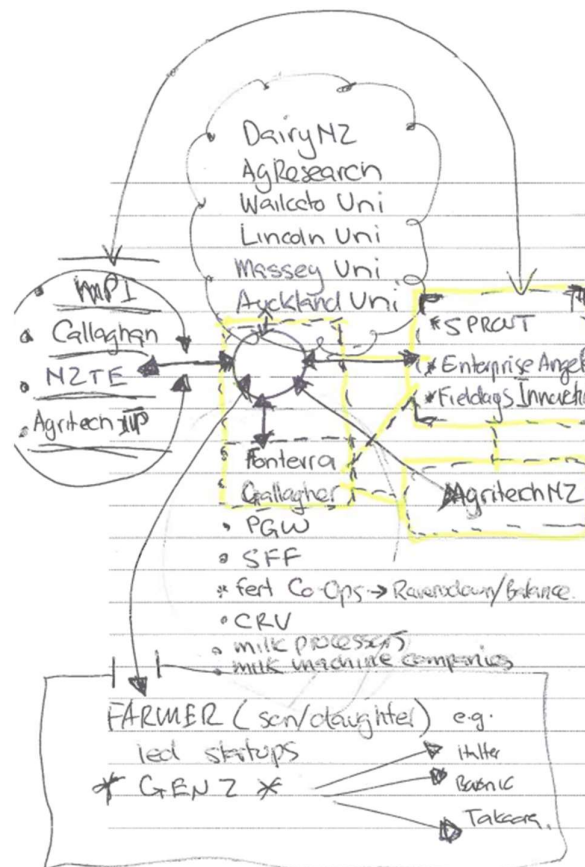 DairyNZ
AgResearch
Waikato Uni
Lincoln Uni
Massey Uni
Auckland Uni
• MPI
• Callaghan
• NZTE
• Agritech IIP
* SPROUT
* Enterprise Angels
* Fieldays Innovation
• Fonterra
• Gallagher
AgritechNZ
• PGW
• SFF
* fert Co-Ops → Ravensdown/Balance
• CRV
• milk processors
• milk machine companies
FARMER (son/daughter) e.g.
led startups
* GEN Z *
Halter